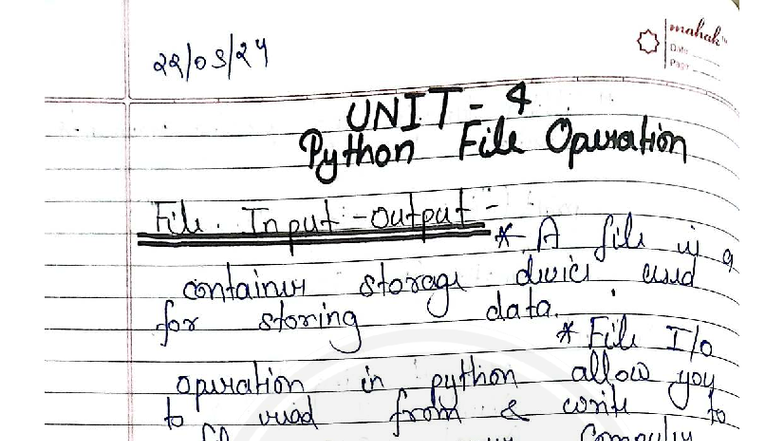 mahak
Date
Page
22/03/24
UNIT - 4
Python File Operation
File Input-output :-
* A file is a
container storage device used
for storing data.
* File I/O
operation in python allow you
to read from & write to